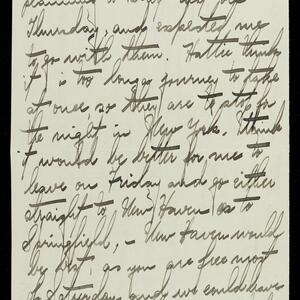 planning to
Thursday, and expected me
to go with them. Hattie thinks
it is too long a journey to take
at once so they are to stop for
the night in New York. I think
it would be better for me to
leave on Friday and go either
straight to New Haven or to
Springfield, – New Haven would
be best, as you are free most
of Saturday and we could have